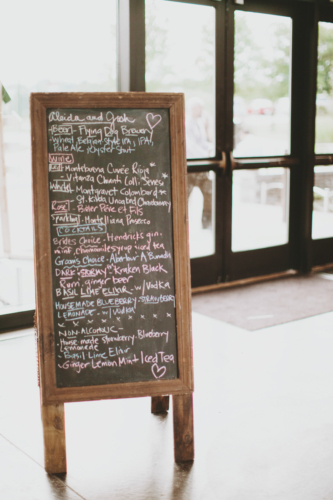 Alaida and Josh
Beer - Flying Dog Brewery
- Wheat Belgian Style IPA,
Pale Ale + Oyster Stout
Wine
Red - Montebuena Cuvée Rioja
- Vitanza Chianti Colli Senesi
White - Montgravet Colombard
- St. Kilda Unoaked Chardonnay
Rosé - Bieler Père et Fils
Sparkling - Prosecco
COCKTAILS
Brides Choice - Hendricks gin,
mint, chamomile syrup iced tea
Grooms Choice - Aberlour A'Bunadh
DARK + STORMY - Kraken Black
Rum, ginger beer
BASIL LIME ELIXIR - w/ Vodka
HOUSEMADE BLUEBERRY STRAWBERRY
LEMONADE - w/ Vodka
x x x x x x
NON-Alcoholic -
- House made strawberry Blueberry
Lemonade
- Basil Lime Elixir
- Ginger Lemon Mint Iced Tea